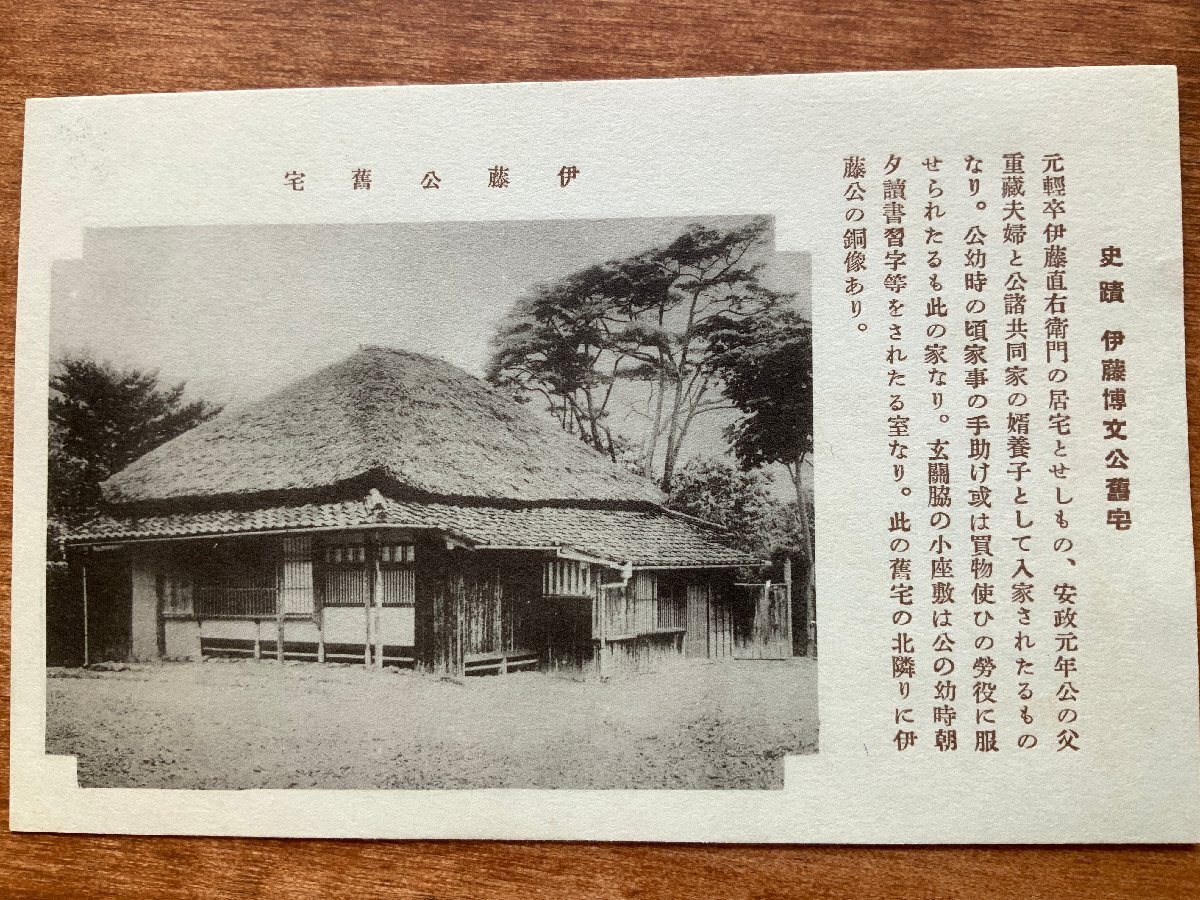 史蹟　伊藤博文公舊宅
元輕卒伊藤直右衛門の居宅とせしもの、安政元年公の父
重藏夫婦と公諸共同家の婿養子として入家されたるもの
なり。公幼時の頃家事の手助け或は買物使ひの勞役に服
せられたるも此の家なり。玄關脇の小座敷は公の幼時朝
夕讀書習字等をされたる室なり。此の舊宅の北隣りに伊
藤公の銅像あり。
宅舊公藤伊